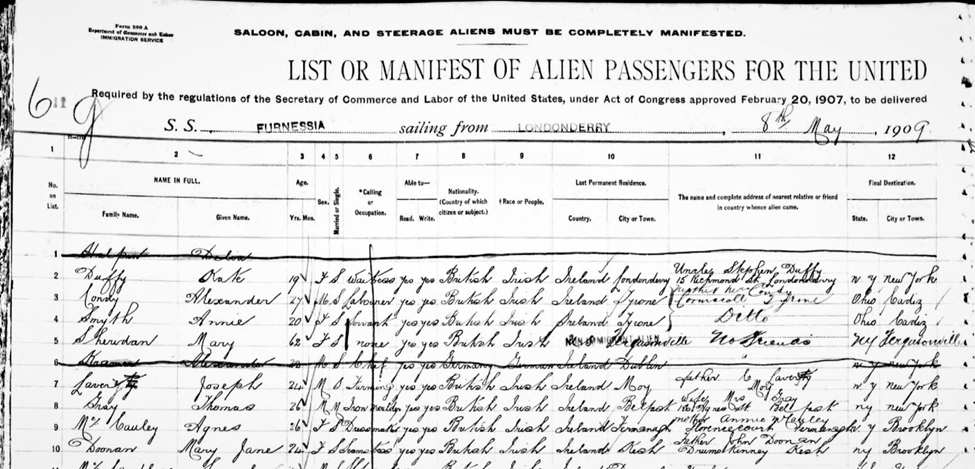 Form 500 A
Department of Commerce and Labor
IMMIGRATION SERVICE
SALOON, CABIN, AND STEERAGE ALIENS MUST BE COMPLETELY MANIFESTED.
LIST OR MANIFEST OF ALIEN PASSENGERS FOR THE UNITED
Required by the regulations of the Secretary of Commerce and Labor of the United States, under Act of Congress approved February 20, 1907, to be delivered
6 g
S. S. FURNESSIA sailing from LONDONDERRY, 8th May, 1909
1 2 3 4 5 6 7 8 9 10 11 12
No. on List. NAME IN FULL. Family Name. Given Name. Age. Yrs. Mos. Sex. Married or Single. *Calling or Occupation. Able to— Read. Write. Nationality. (Country of which citizen or subject.) †Race or People. Last Permanent Residence. Country. City or Town. The name and complete address of nearest relative or friend in country whence alien came. Final Destination. State. City or Town.
1 Delia
2 Duffy Kate 19 F S Waitress yes yes British Irish Ireland Londonderry Uncle Stephen Duffy 15 Richmond St Londonderry N Y New York
3 Alexander 27 M S Labourer yes yes British Irish Ireland Tyrone Tyrone Ohio Cadiz
4 Smyth Annie 20 F S Servant yes yes British Irish Ireland Tyrone Ditto Ohio Cadiz
5 Sheridan Mary 62 F S none yes yes British Irish No Friends NY Fergusonville
6 Alexander M S Chef yes yes Germany German Ireland Dublin N Y New York
7 Joseph 24 M S Farming yes yes British Irish Ireland Moy father Moy N Y New York
8 Gray Thomas 26 M M Iron yes yes British Irish Ireland Belfast wife Mrs Gray St Belfast NY New York
9 McCauley Agnes 26 F S yes yes British Irish Ireland Fermanagh mother Annie Florencecourt Fermanagh N Y Brooklyn
10 Doonan Mary Jane 24 F S yes yes British Irish Ireland Kesh father John Doonan Drumskinney Kesh NY Brooklyn